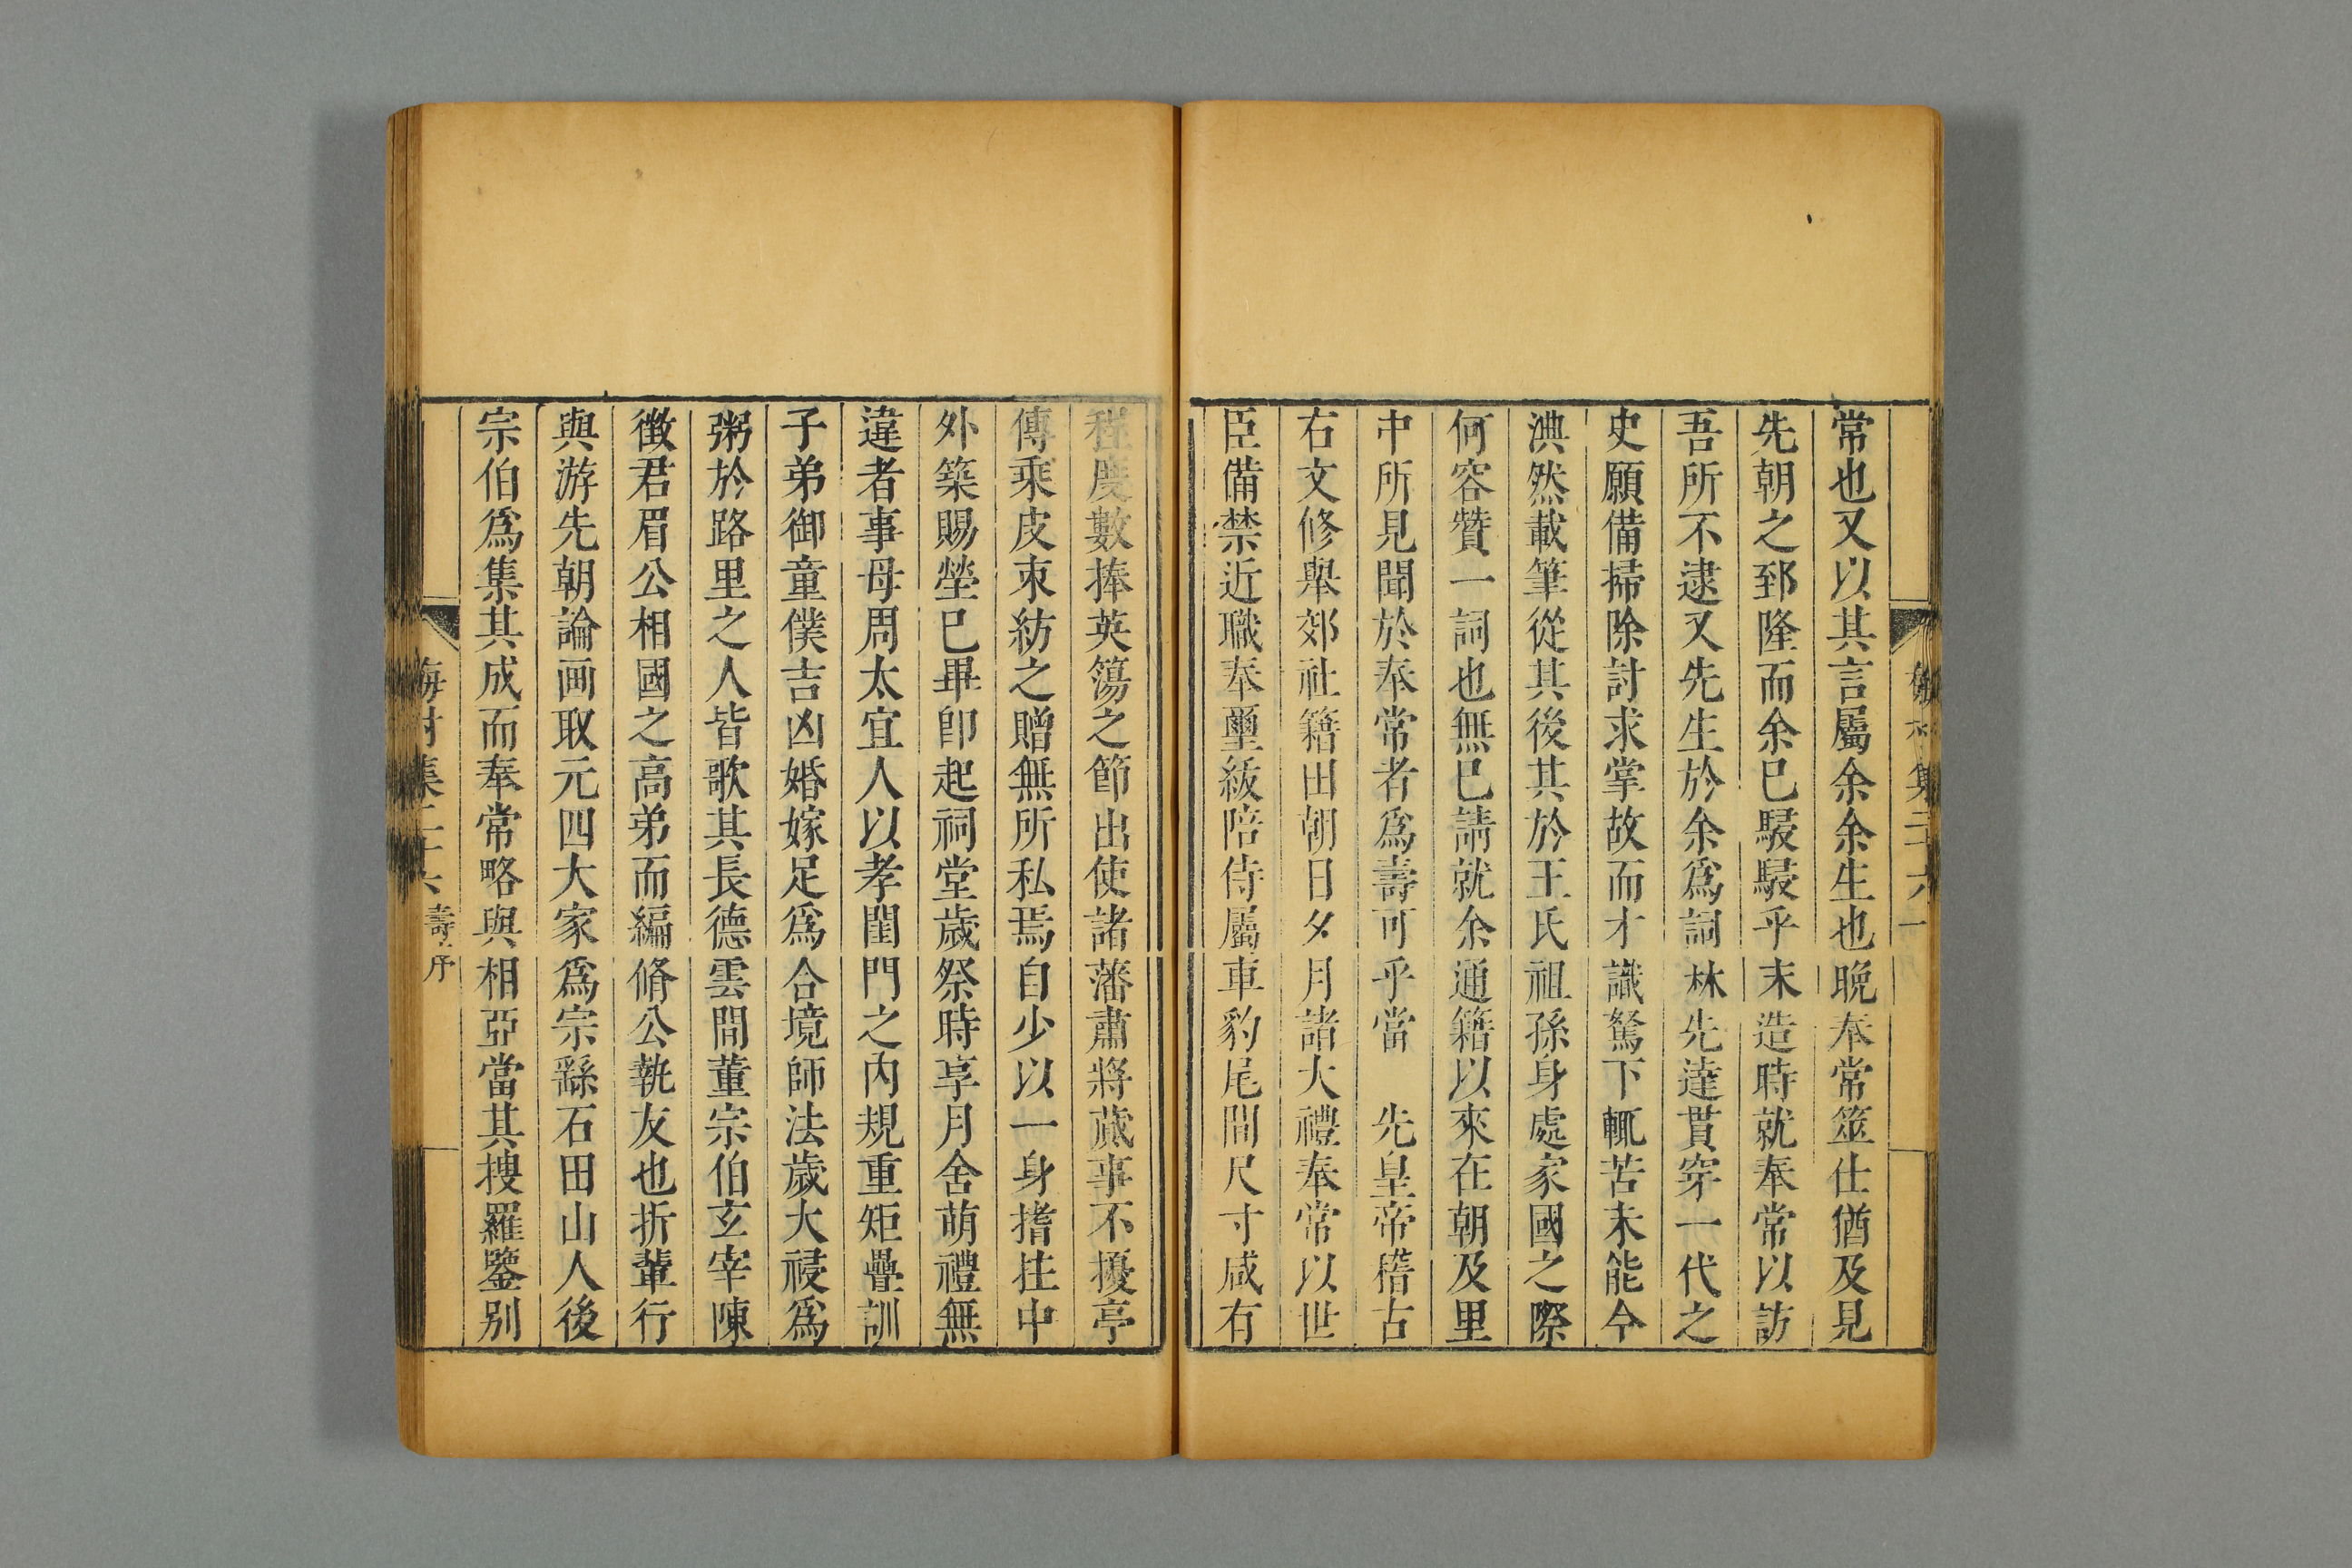 常也又以其言屬余余生也晚奉常筮仕猶及見
先朝之郅隆而余已駸駸乎末造時就奉常以訪
吾所不逮又先生於余爲詞林先達貫穿一代之
史願備掃除討求掌故而才識駑下輒苦未能今
淟然載筆從其後其於王氏祖孫身處家國之際
何容贊一詞也無已請就余通籍以來在朝及里
中所見聞於奉常者爲壽可乎當 先皇帝稽古
右文修舉郊社籍田朝日夕月諸大禮奉常以世
臣備禁近職奉璽紱陪侍屬車豹尾間尺寸咸有
程度數捧英簜之節出使諸藩肅將蕆事不擾亭
傳乘皮束紡之贈無所私焉自少以一身搘拄中
外築賜塋已畢卽起祠堂歲祭時享月舍萌禮無
違者事母周太宜人以孝閨門之內規重矩疊訓
子弟御童僕吉凶婚嫁足爲合境師法歲大祲爲
粥於路里之人皆歌其長德雲間董宗伯玄宰陳
徵君眉公相國之高弟而編脩公執友也折輩行
與游先朝論画取元四大家爲宗繇石田山人後
宗伯爲集其成而奉常略與相亞當其搜羅鑒别
梅村集二十六 壽序